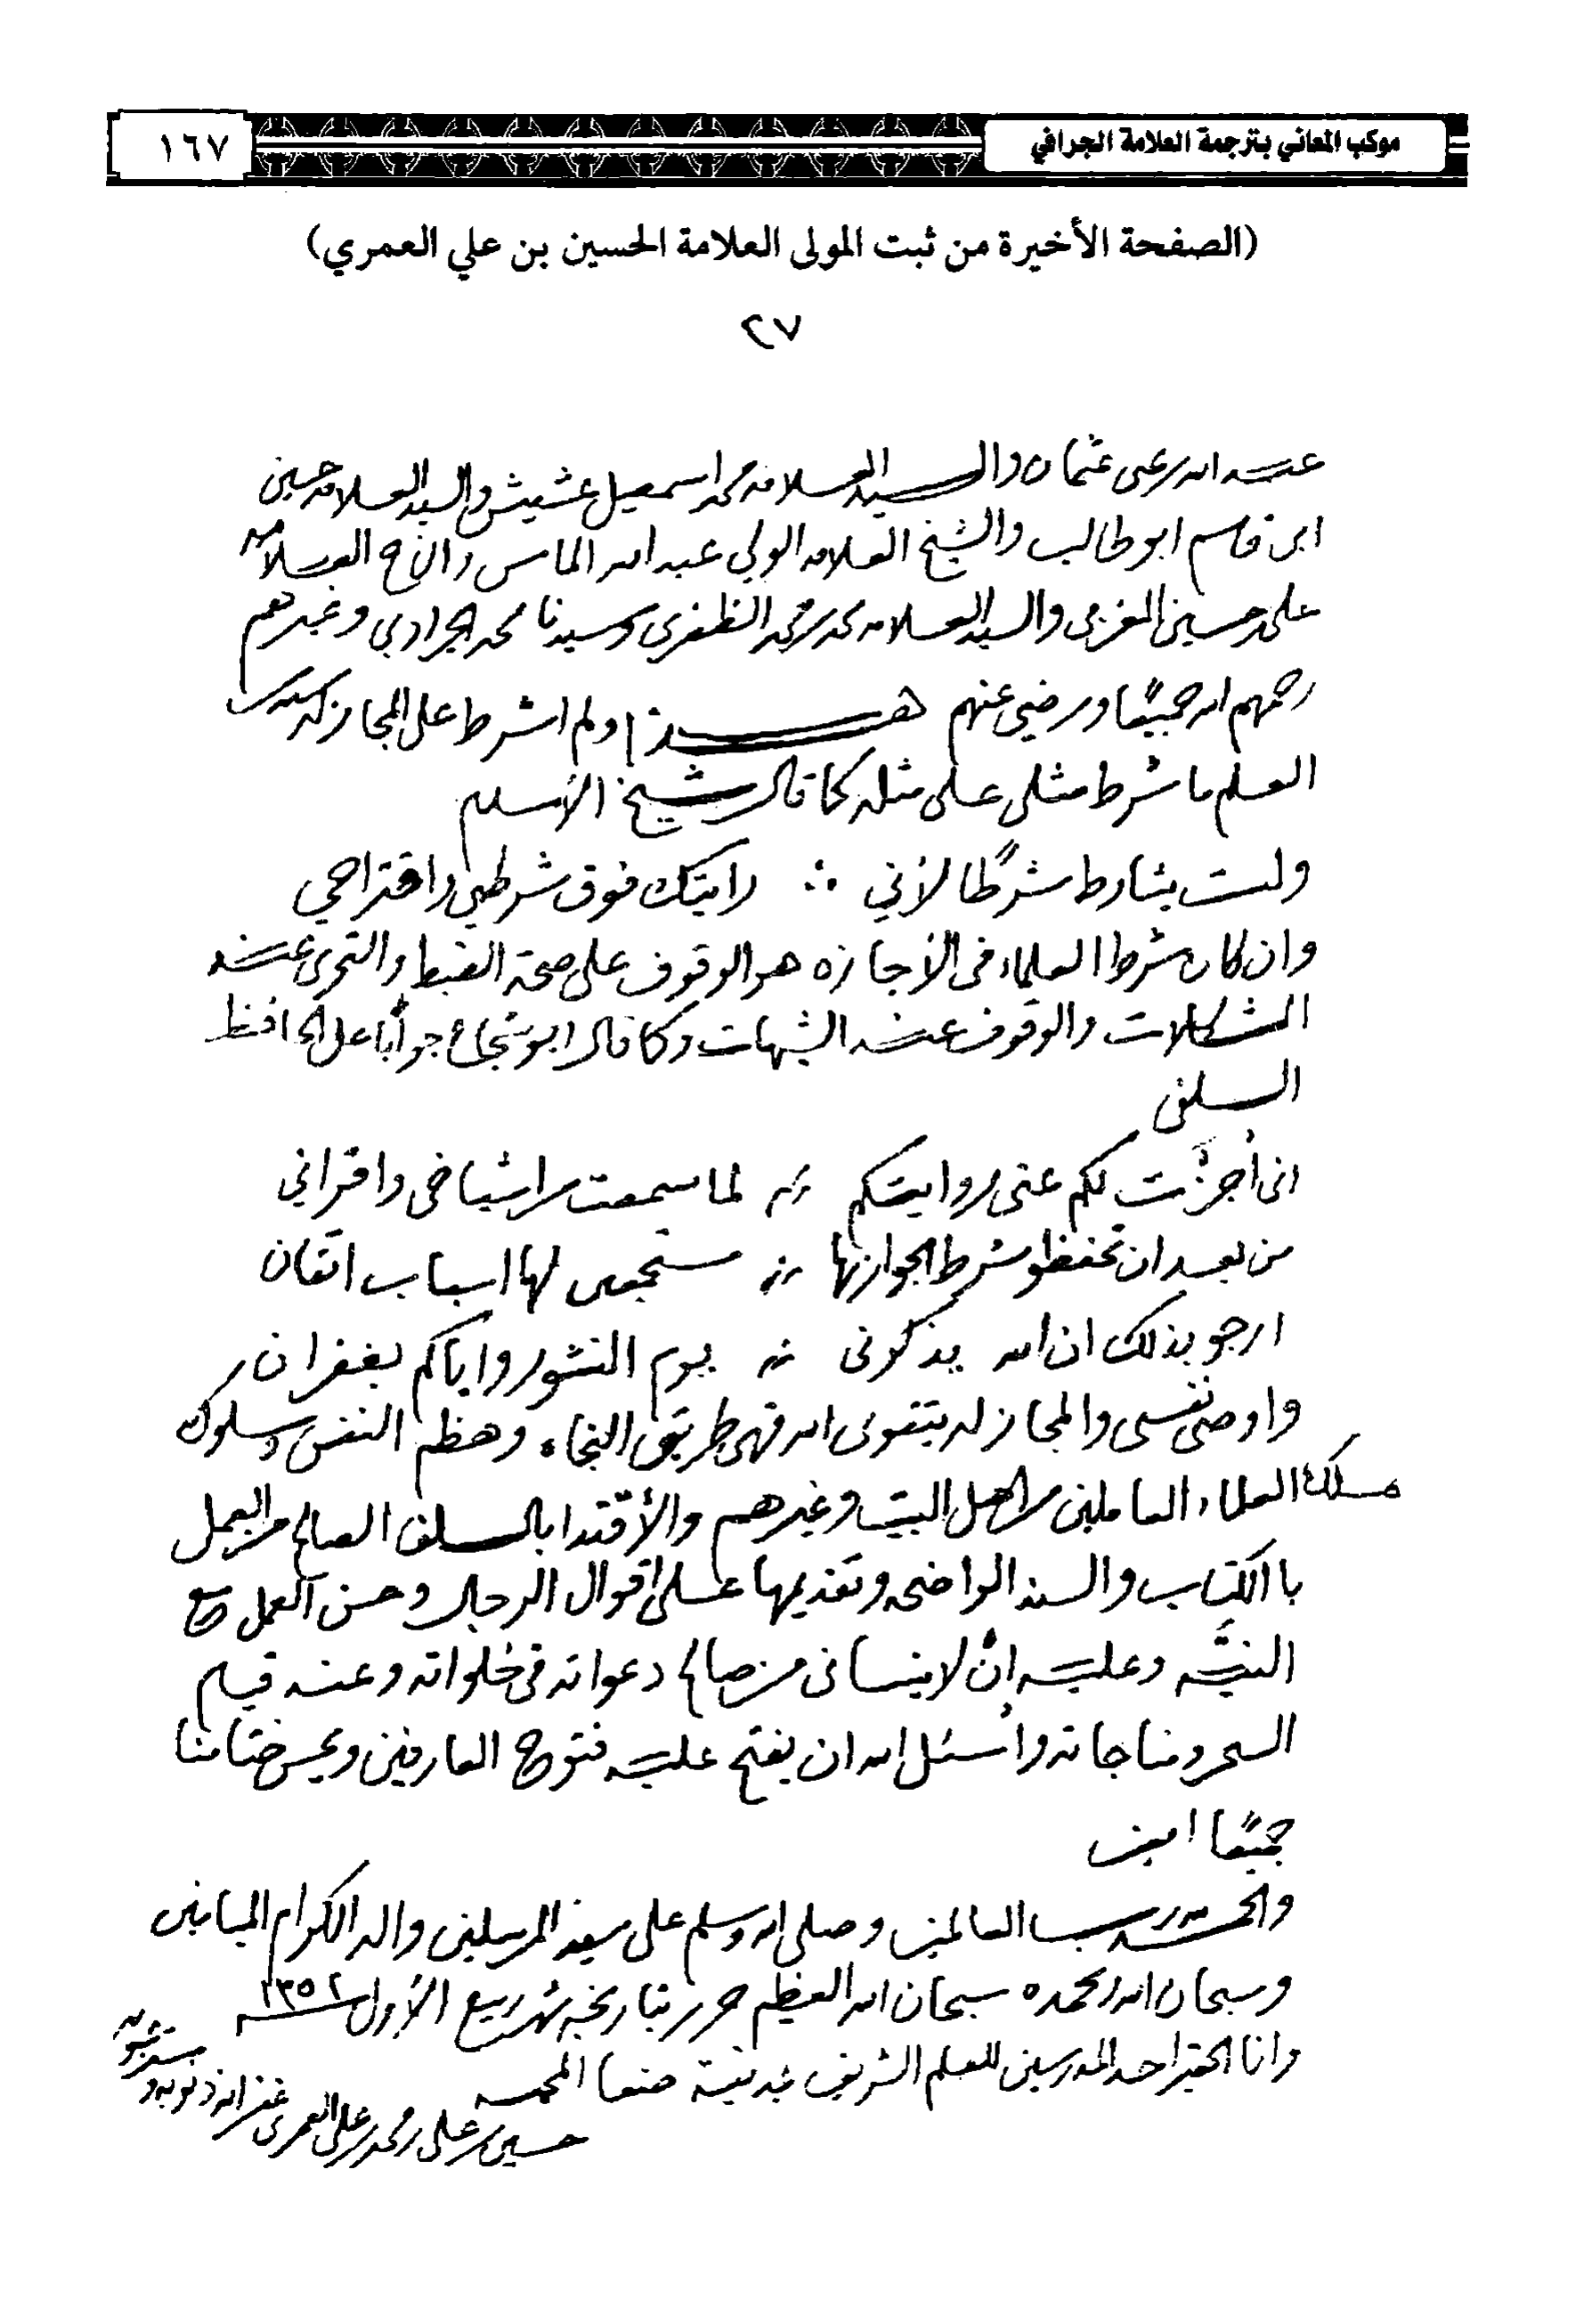 موكب المعاني بترجمة العلامة الجرافي
١٦٧
(الصفحة الأخيرة من ثبت المولى العلامة الحسين بن علي العمري)
٢٧
عبد الله بن علي عثمان والسيد العلامه محمد اسمعيل عشيش والسيد العلامه حسين
ابن قاسم ابو طالب والشيخ العلامه الولي عبد الله الماس والاخ العلامه
علي حسين المغربي والسيد العلامه محمد بن محمد الظفري وسيدنا محمد الجرادي وغيرهم
رحمهم الله جميعًا ورضي عنهم هذا ولم اشرط على المجاز له
العلم ما شرط مثلي على مثله كما قال شيخ الأسلام
ولست بشارط شرطًا لأني ∴ رايتك فوق شرطي واقتراحي
وان كان شرط العلماء في الأجازه هو الوقوف على صحة الضبط والتحري عند
المشكلات والوقوف عند الشبهات وكما قال ابو شجاع جوابًا على الحافظ
السلفي
اني أجزت لكم عني روايتكم لما سمعت من اشياخي واقراني
من بعد ان تحفظو شرط الجواز لها مستجمعين لها اسباب اتقان
ارجو بذلك ان الله يذكرني يوم النشور واياكم بغفران
واوصي نفسي والمجاز له بتقوى الله فهي طريق النجاه وهظم النفس وسلوك
مسلك العلماء العاملين من اهل البيت وغيرهم والأقتدا بالسلف الصالح من العمل
باالكتاب والسنه الواضحه وتقديمها على اقوال الرجال وحسن العمل مع
النيَّه وعليه انْ لا ينساني من صالح دعواته في خلواته وعند قيام
السحر ومناجاته وأسئل الله ان يفتح عليه فتوح العارفين ويحسن ختامنا
جميعًا امين
والحمد لله رب العالمين وصلى الله وسلم على سيد المرسلين واله الكرام الميامين
وسبحان الله وبحمده سبحان الله العظيم حرر بتاريخه شهر ربيع الأول سنه ١٣٥٢
وانا الحقير احد المدرسين للعلم الشريف بمدينة صنعا المحميه
حسين بن علي بن محمد بن علي العمري غفر الله ذنوبه وستر عيوبه